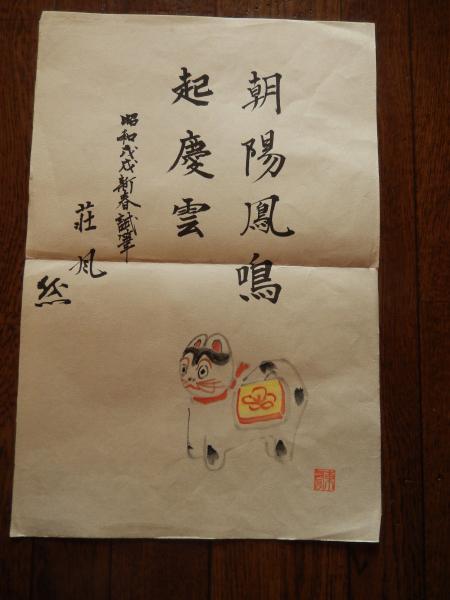 朝陽鳳鳴
起慶雲
昭和戊戌新春試筆
荘風